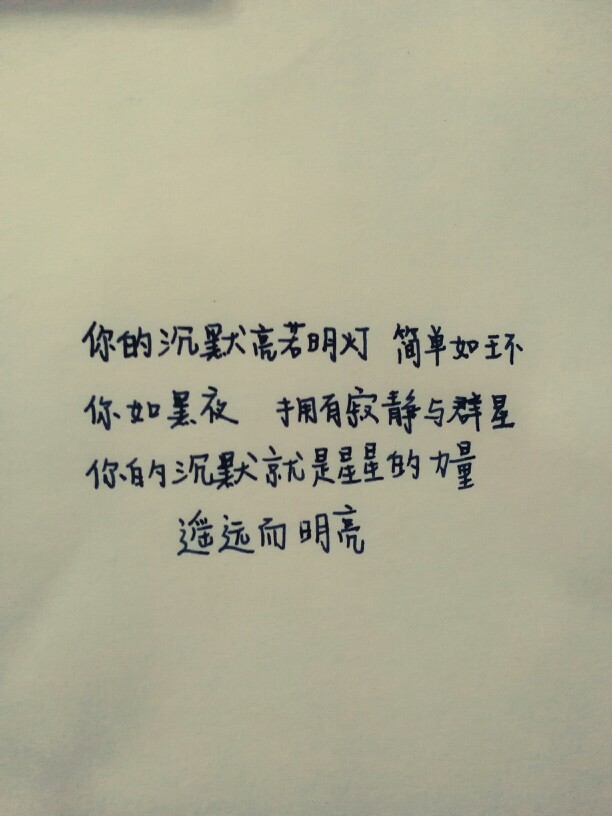 你的沉默亮若明灯 简单如环
你如黑夜 拥有寂静与群星
你的沉默就是星星的力量
遥远而明亮